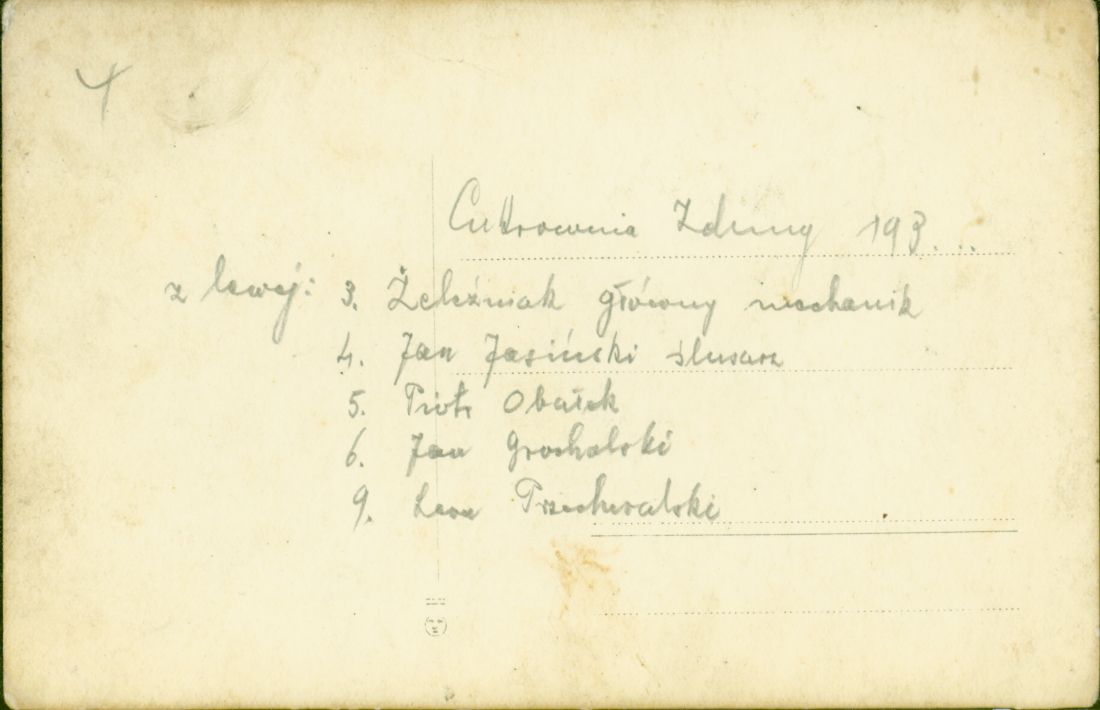 Cukrownia Zduny 193...
z lewej: 3. Żeleźniak główny mechanik
4. Jan Jasiński ślusarz
5. Piotr Obałek
6. Jan Grochalski
9. Leon Przechwalski